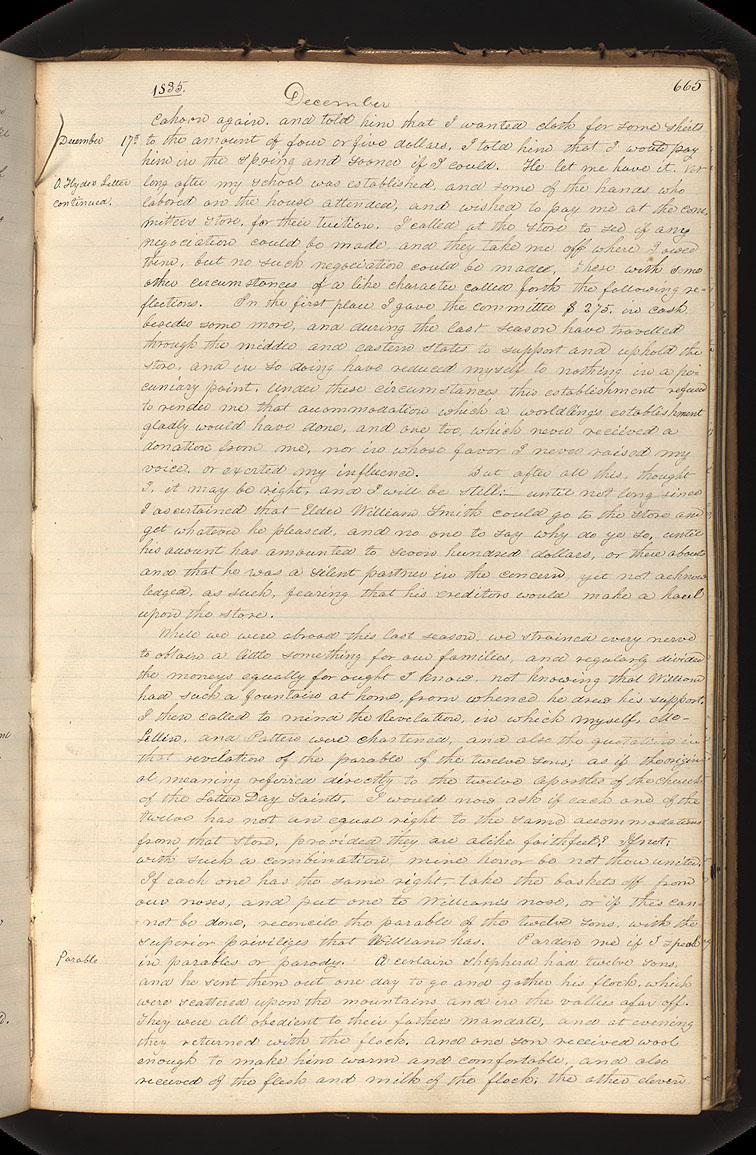 1835.
December
665
cahoon again. and told him that I wanted cloth for some shirts
December 17th to the amount of four or five dollars, I told him that I would pay
him in the spring and sooner if I could. He let me have it. Not
O. Hydes Letter continued. long after my school was established, and some of the hands who
labored on the house attended, and wished to pay me at the com-
mittees store, for their tuition. I called at the store to see if any
negociation could be made, and they take me off where I owed
them, but no such negociation could be made. These with some
other circumstances of a like character called forth the following re-
flections. In the first place I gave the committee $275. in cash
besides some more, and during the last season have travelled
through the middle and eastern states to support and uphold the
store, and in so doing have reduced myself to nothing in a pe-
cuniary point. Under these circumstances this establishment refused
to render me that accommodation which a worldling's establishment
gladly would have done, and one too, which never received a
donation from me, nor in whose favor I never raised my
voice, or exerted my influence. But after all this, thought
I, it may be right, and I will be still:— until not long since
I ascertained that Elder William Smith could go to the store and
get whatever he pleased, and no one to say why do ye so, until
his account has amounted to seven hundred dollars, or there abouts
and that he was a silent partner in the concern, yet not acknow
ledged, as such, fearing that his creditors would make a haul
upon the store.
While we were abroad this last season, we strained every nerve
to obtain a little something for our families, and regularly divided
the moneys equally for ought I know, not knowing that William
had such a fountain at home, from whence he drew his support.
I then called to mind the Revelation, in which myself, Mc-
Lellin, and Patten were chastened, and also the quotation in
that revelation of the parable of the twelve sons; as if the origin-
al meaning referred directly to the twelve Apostles of the church
of the Latter Day Saints. I would now ask if each one of the
twelve has not an equal right to the same accommodations
from that store, provided they are alike faithful? If not;
with such a combination, mine honor be not thou united.
If each one has the same right, take the baskets off from
our noses, and put one to William's nose, or if this can-
not be done, reconcile the parable of the twelve sons, with the
superior privileges that William has. Pardon me if I speak
Parable in parables or parody. A certain shepherd had twelve sons,
and he sent them out one day to go and gather his flock, which
were scattered upon the mountains and in the vallies afar off.
They were all obedient to their fathers mandate, and at evening
they returned with the flock, and one son received wool
enough to make him warm and comfortable, and also
received of the flesh and milk of the flock; the other eleven